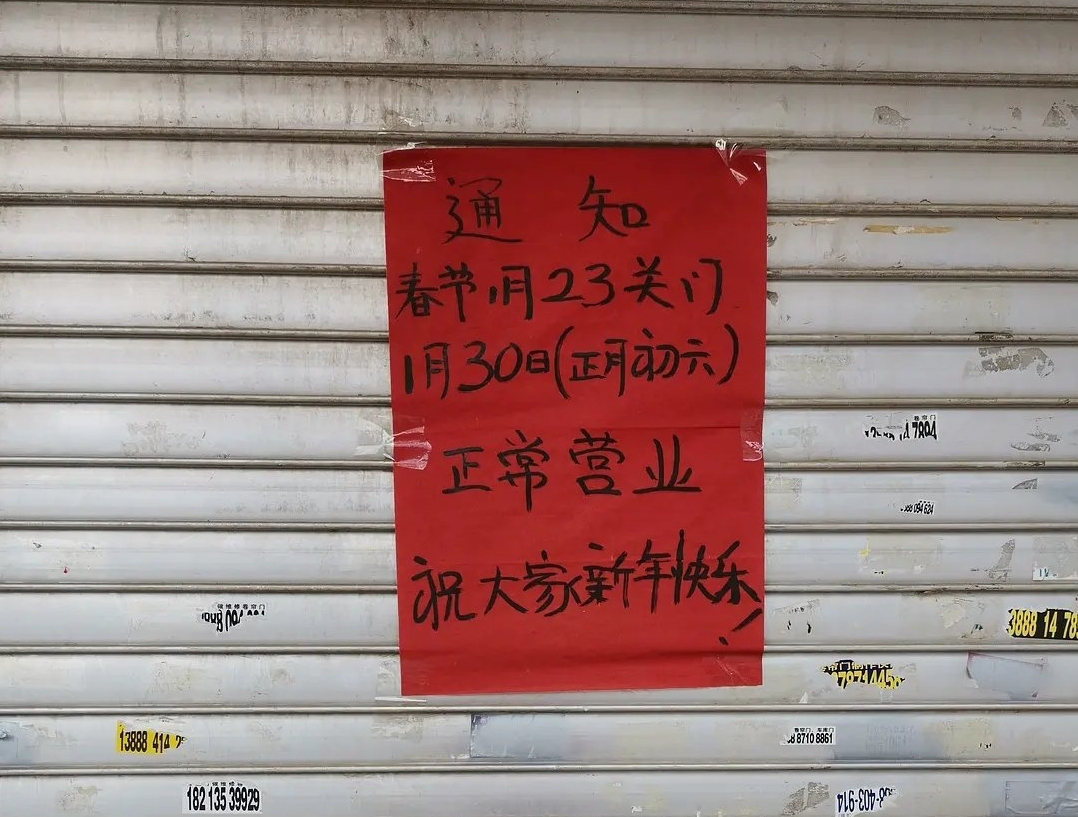 通知
春节1月23关门
1月30日(正月初六)
正常营业
祝大家新年快乐!
卷帘门
7894
13888 414
182 135 39929
卷帘门
8 8710 8861
3888 14 78